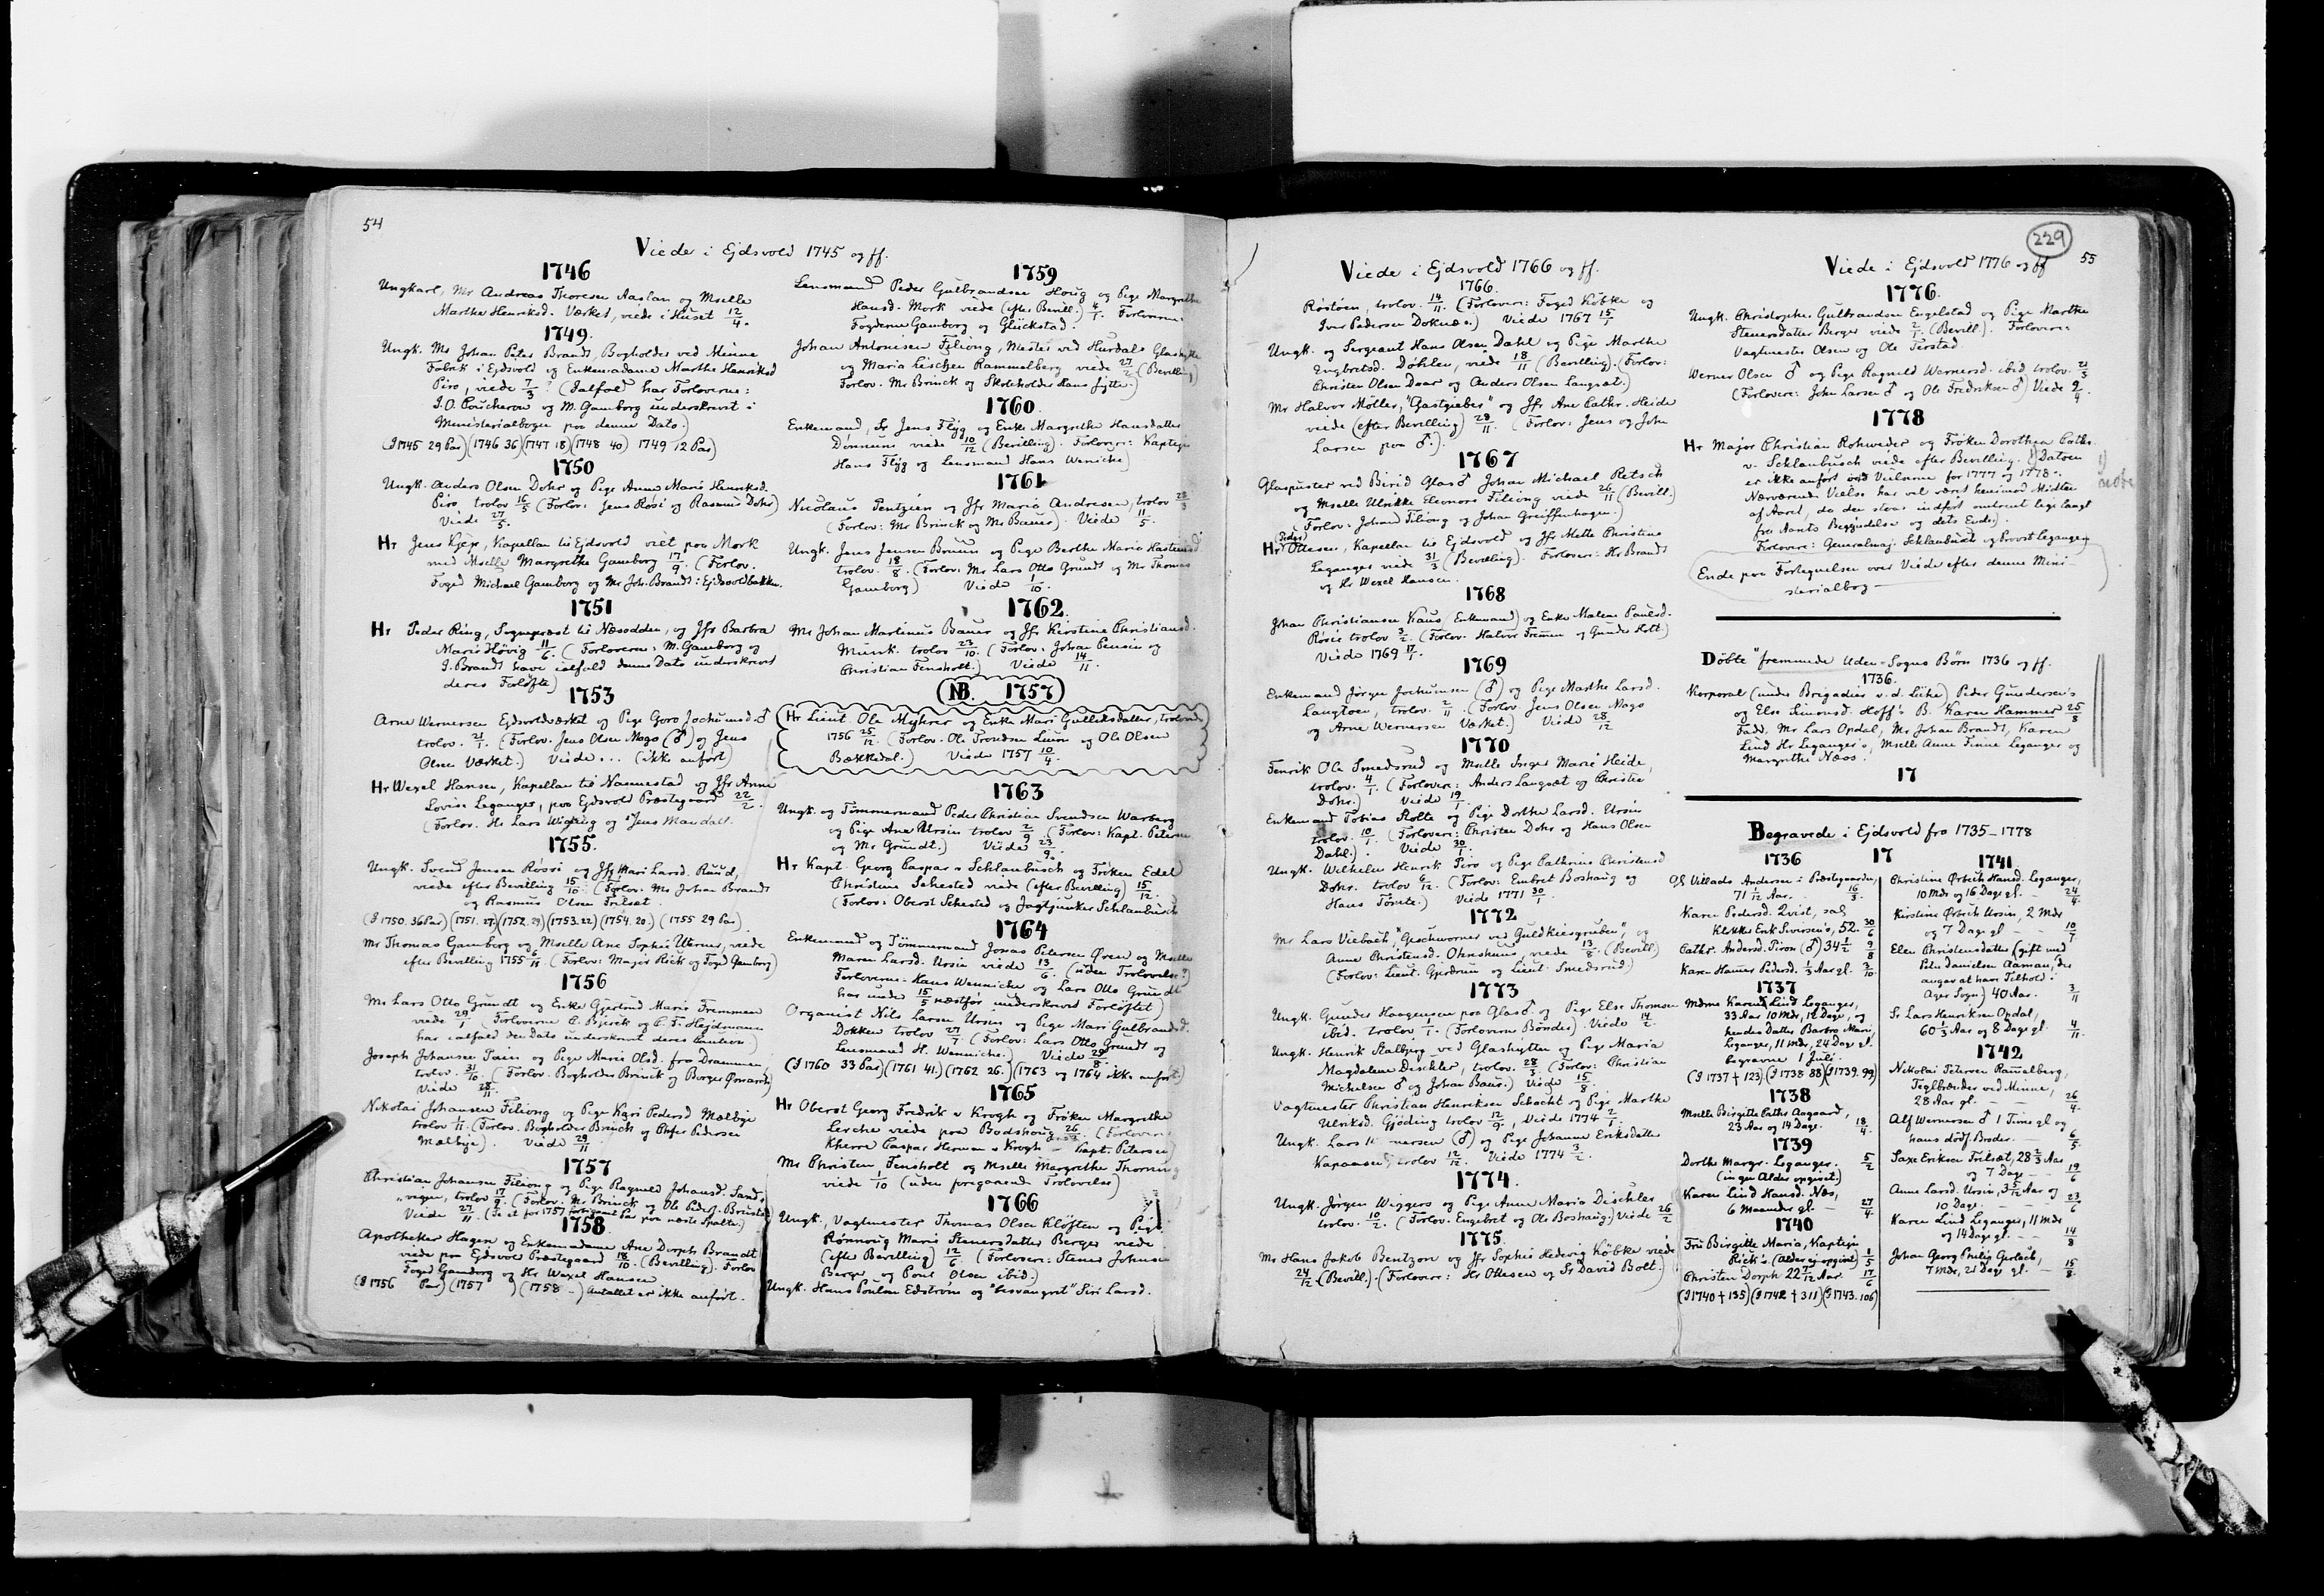 54
Viede i Ejdsvold 1745 og ff.
1746
Ungkarl, Mr Andreas Thoresen Aaslan og Mselle
Marthe Henriksd. Værket, viede i Huset 12/4.
1749.
Ungk. Mr Johan Peter Brandt, Bogholder ved Minne
Fabrik i Ejdsvold og Enkemadame Marthe Henriksd
Piro, viede 7/3? (Ialfald har Forloverne:
I.O. Poucheron og M. Gamborg underskrevet i
Ministerialbogen paa denne Dato.)
(I 1745 29 Par) (1746 36) (1747 18) (1748 40) 1749 12 Par)
1750
Ungk. Anders Olsen Dohr og Pige Anne Marie Henriksd.
Piro trolov 16/5 (Forlov: Jens Røsi og Rasmus Dohr)
Viede 27/5.
Hr Jens Kjex, Kapellan til Ejdsvold viet paa Mork
med Mselle Margrethe Gamborg 17/9. (Forlov.
Foged Michael Gamborg og Mr Joh. Brandt i Ejdsvoldbakken.
1751
Hr Peder Ring, Sognepræst til Næsodden, og Jfr Barbra
Marie Høvig 11/6. (Forloverne: M. Gamborg og
J. Brandt have ialfald denne Dato underskrevet
deres Forløfte)
1753
Arne Wernersen Ejdsvoldværket og Pige Goro Jochumsd. ♂
trolov. 21/1. (Forlov. Jens Olsen Mago (♂) og Jens
Olsen Værket.) Viede ... (ikke anført)
Hr Wexel Hansen, Kapellan til Nannestad og Jfr Anne
Lovise Leganger, paa Ejdsvold Præstegaard 22/2.
(Forlov. Hr Lars Wigding og Jens Mandall.
1755.
Ungk. Svend Jensen Røsvi og Jfr Mari Larsd. Ruud,
viede efter Bevilling 15/10. (Forlov. Mr Johan Brandt
og Rasmus Olsen Trilsæt.
(I 1750. 36 Par) (1751. 27.) (1752. 29) (1753. 22) (1754. 20.) (1755 29 Par)
Mr Thomas Gamborg og Mselle Ane Sophie Werner, viede
efter Bevilling 1755 6/11. (Forlov: Major Rick og Foged Gamborg)
1756
Mr Lars Otto Grundt og Enke Gjertrud Marie Fremmen
viede 29/1 (Forloverne C. Bjerck og C. F. Hejdmann
har ialfald den Dato underskrevet deres Caution.)
Joseph Johansen Paien og Pige Marie Olsd. fra Drammen,
trolov. 31/10. (Forlov. Bogholder Brinck og Borger Ørnarth)
Viede 28/11.
Nikolai Johansen Filiong og Pige Kari Pedersd Mælbye
trolov 1/11. (Forlov. Bogholder Brinck og Christ Pedersen
Mælbye). Viede 29/11
1757
Christian Johansen Filiong og Pige Ragnild Johansd. Sands-
vegen, trolov 17/9. (Forlov. Mr Brinck og Ole Peders. Brustad)
Viede 27/11. (Se et for 1757 forlignent Par paa næste Spalte.)
1758
Apotheker Hagen og Enkemadame Ane Dorph Brandt
viede paa Ejdsvold Præstegaard 18/10. (Bevilling). Forlov
Foged Gamborg og Hr Wexel Hansen
(I 1756 Par) (1757 ) (1758 -) Antallet er ikke anført.
1759
Lensmand Peder Gulbrandsen Houg og Pige Margrethe
Hansd. Mork viede (efter Bevill.) 4/1. Forloverne:
Fogderne Gamborg og Glückstad.
Johan Antonisen Filiong, Mester ved Hurdals Glashytte
og Maria Lischen Rammelberg viede 27/2 (Bevilling)
Forlov. Mr Brinck og Skoleholder Hans Jytte.)
1760.
Enkemand, Sr Jens Flyg og Enke Margrethe Hansdatter
Dønnum viede 10/12 (Bevilling). Forlover: Kaptejn
Hans Flyg og Lensmand Hans Weniche)
1761
Nicolaus Pentzien og Jfr Maria Andresen, trolov 28/3
(Forlov: Mr Brinck og Mr Bauer). Viede 11/5.
Ungk. Jens Jensen Bruun og Pige Berthe Maria Hastensd
trolov. 18/8. (Forlov: Mr Lars Otto Grundt og Mr Thomas
Gamborg) Viede 1/10.
1762.
Mr Johan Martinus Bauer og Jfr Kirstine Christiansd.
Munk. trolov 23/10. (Forlov: Johan Pensen og
Christian Fensholt.) Viede 14/11.
NB. 1757
Hr Lieut. Ole Myhrer og Enke Mari Gulleksdatter, trolovede
1756 25/12. (Forlov. Ole Trondsen Luun og Ole Olsen
Bækkedal.) Viede 1757 10/4.
1763
Ungk. og Tømmermand Peder Christian Svendsen Warberg
og Pige Ane Ursin trolov 2/9 (Forlov: Kapt. Petersen
og Mr Grundt.) Viede 23/9.
Hr Kapt. Georg Caspar v Schlanbusch og Frøken Edel
Christine Sehested viede (efter Bevilling) 15/12.
(Forlov: Oberst Sehested og Jagtjunker Schlanbusch
1764
Enkemand og Tømmermand Jonas Petersen Øren og Mselle
Maren Larsd. Ursin viede 13/6. (uden Trolovelse?)
Forloverne: Hans Wenniche og Lars Otto Grundt
har under 15/5 næstfør underskrevet Forløftet)
Organist Nils Larsen Ursin og Pige Mari Gulbrandsd.
Dokken trolov 27/7 (Forlov: Lars Otto Grundt og
Lensmand H. Wenniche.) Viede 29/8
(I 1760 33 Par) (1761 41.) (1762 26.) (1763 og 1764 ikke anført)
1765
Hr Oberst Georg Fredrik v Krogh og Frøken Margrethe
Lerche viede paa Bodshoug 26/ (Forlovere:
Kherre Caspar Herman v Krogh — Kapt. Petersen)
Mr Christen Fensholt og Mselle Margrethe Thorning
viede 1/10 (uden foregaaende Trolovelse)
1766
Ungk., Vagtmester Thomas Olsen Kløften og Pige
Rønnovig Marie Stenersdatter Berger viede
(efter Bevilling) 12/6 (Forlovere: Stener Johnsen
Berger og Poul Olsen ibid.)
Ungk. Hans Poulsen Edstrøm og "Besvangret" Siri Larsd.
229
Viede i Ejdsvold 1766 og ff.
1766.
Røstøen, trolov. 14/11. (Forlovere: Foged Købke og
Iver Pedersen Doknæs.) Viede 1767 15/1
Ungk. og Sergeant Hans Olsen Dahl og Pige Marthe
Engbretsd. Døhlen, viede 18/11 (Bevilling). (Forlov:
Christen Olsen Doar og Anders Olsen Langsæt.)
Mr Halvor Møller, "Gastgieber" og Jfr Ane Cathr. Heide
viede (efter Bevilling) 28/11. (Forlov: Jens og John
Larsen paa ♂.)
1767
Glaspuster ved Birid Glas♂ Johan Michael Retsch
og Mselle Ulrikke Eleonora Filiong viede 26/11 (Bevill.)
(Forlov: Johan Filiong og Johan Greiffenhagen.)
(Peder)
Hr Ottesen, Kapellan til Ejdsvold og Jfr Mette Christine
Leganger viede 31/3 (Bevilling). Forlovere: Hr Brandt
og Hr Wexel Hansen.
1768
Johan Christiansen Kaus (Enkemand) og Enke Malene Paulsd.
Røsie trolov 3/2. (Forlov. Halvor Fremen og Gunder Holt.)
Viede 1769 17/1.
1769
Enkemand Jørgen Jochumsen (♂) og Pige Marthe Larsd.
Langtoen, trolov. 2/11. (Forlov Jens Olsen Mago
og Arne Wernersen Værket.) Viede 28/12
1770
Fenrik Ole Smedsrud og Mselle Inger Marie Heide,
trolov. 4/1. (Forlovere: Anders Langsæt og Christen
Dohr.) Viede 19/1.
Enkemand Tobias Stolte og Pige Dorthe Larsd. Ursin
trolov. 10/1. (Forlovere: Christen Dohr og Hans Olsen
Dahl.). Viede 30/1.
Ungk. Wilhelm Henrik Piro og Pige Cathrine Christensd
Dohr. trolov 6/12. (Forlov: Embret Boshaug og
Hans Tømte.) Viede 1771 30/1.
1772
Mr Lars Viebach, "Geschworner ved Guldkiesgruben", og
Anne Christensd. Ohnshuus, viede 13/8. (Bevill)
(Forlov: Lieut. Gjerdrum og Lieut. Smedsrud.)
1773
Ungk. Gunder Haagensen paa Glas♂. og Pige Else Thomsen
ibid. trolov 1/1. (Forloverne Bønder). Viede 14/2.
Ungk. Henrik Stalbjerg ved Glashytten og Pige Maria
Magdalena Dischler, trolov. 28/3. (Forlov: Christian
Michelsen ♂ og Johan Baus.) Viede 15/8.
Vagtmester Christian Henriksen Schacht og Pige Marthe
Ulriksd. Gjøding trolov 12/9, Viede 1774 2/1.
Ungk. Lars nersen (♂) og Pige Johanne Eriksdatter
Kapaasen, trolov 12/12. Viede 1774 3/2.
1774.
Ungk. Jørgen Wiggers og Pige Anne Maria Dischler
trolov. 10/2. (Forlov. Engebret og Ole Boshaug.) Viede 26/2
1775.
Mr Hans Jakob Bentzon og Jfr Sophie Hedevig Købke viede
24/12 (Bevill.). (Forlovere: Hr Ottesen og Sr David Bolt.)
Viede i Ejdsvold 1776 og ff 55
1776.
Ungk. Christopher Gulbrandsen Engelstad og Pige Marthe
Stenersdatter Berger viede 2/1. (Bevill). Forlovere:
Vagtmester Olsen og Ole Terstad.
Werner Olsen ♂ og Pige Ragnild Wernersd. ibid. trolov. 21/3
(Forlovere: John Larsen ♂ og Ole Fredriksen ♂) Viede 9/4.
1778
Hr Major Christian Rohweder og Frøken Dorothea Cathr.
v. Schlanbusch viede efter Bevilling. (Datoen
er ikke anført ved Vielserne for 1777 og 1778.
Nærværende Vielse har vel været henimod Midten
af Aaret, da den staar indført omtrent lige langt
fra Aarets Begyndelse og dets Ende).
Forlovere: Generalmaj. Schlanbusch og Provst Leganger
Ende paa Fortegnelsen over Viede efter denne Mini-
sterialbog —
Døbte "fremmede Uden-Sogns Børn 1736 og ff.
1736.
Korporal (under Brigadier v. d. Lühe) Peder Gundersen's
og Else Simonsd. Hoff's B. Karen Hammer 25/8
Fadd. Mr Lars Opdal, Mr Johan Brandt, Karen
Lind Hr Leganger's, Mselle Anne Finne Leganger og
Margrethe Næss.
17
Begravede i Ejdsvold fra 1735–1778
17
1736
Villads Andersen i Præstegaarden,
71 1/12 Aar. 16/3.
Karen Pedersd. Qvist, sal
Klokker Erik Iversen's, 52. 30/6
Cathr. Andersd. Piron (♂) 34 1/2 9/8
Karen Hanner Pedersd. 1/3 Aar gl. 3/10.
1737
Mdme Karen Lind Leganger,
33 Aar 10 Mdr, 12 Dage, og
hendes Datter Barbro Mari,
Leganger, 11 Mdr, 24 Dage gl.
begravne 1 Juli.
(I 1737 † 123) (I 1738 88) (I 1739. 99)
1738
Mselle Birgitte Cathr Aagaard,
23 Aar og 14 Dage. 18/4.
1739
Dorthe Margr. Leganger. 5/2
(ingen Alder opgivet.)
Karen Lind Hansd. Næs,
6 Maaneder gl. — 27/4.
1740
Fru Birgitte Maria, Kaptejn
Rick's (Alder ej opgivet) 1/5
Christen Dorph 22 7/12 Aar. 17/6
(I 1740 † 135) (I 1742 † 311) (I 1743. 106)
1741.
Christine Ørbech Hansd. Leganger,
10 Mdr og 16 Dage gl. — 24/4.
Kirstine Ørbech Ursin, 2 Mdr
og 7 Dage gl — — 10/7
Elen Christensdatter (gift med
Peter Danielsen Aaman, der
angav at have Tilhold i
Ager Sogn) 40 Aar. 3/11
Sr Lars Henriksen Opdal,
60 1/3 Aar og 8 Dage gl. 4/11.
1742
Nikolai Petersen Ramelberg,
Teglbrænder ved Minne,
28 Aar gl. — — 26/4.
Alf Wernersen ♂ 1 Time gl og
hans dødf. Broder. — 6/5.
Saxe Eriksen Trilsæt, 28 2/3 Aar
og 7 Dage — 19/6
Anne Larsd. Ursin, 3 5/12 Aar og
10 Dage. — — 23/6
Karen Lind Leganger, 11 Mdr
og 14 Dage gl. — — 14/8
Johan Georg Philip Gerlach,
7 Mdr, 21 Dage gl. — 15/8.